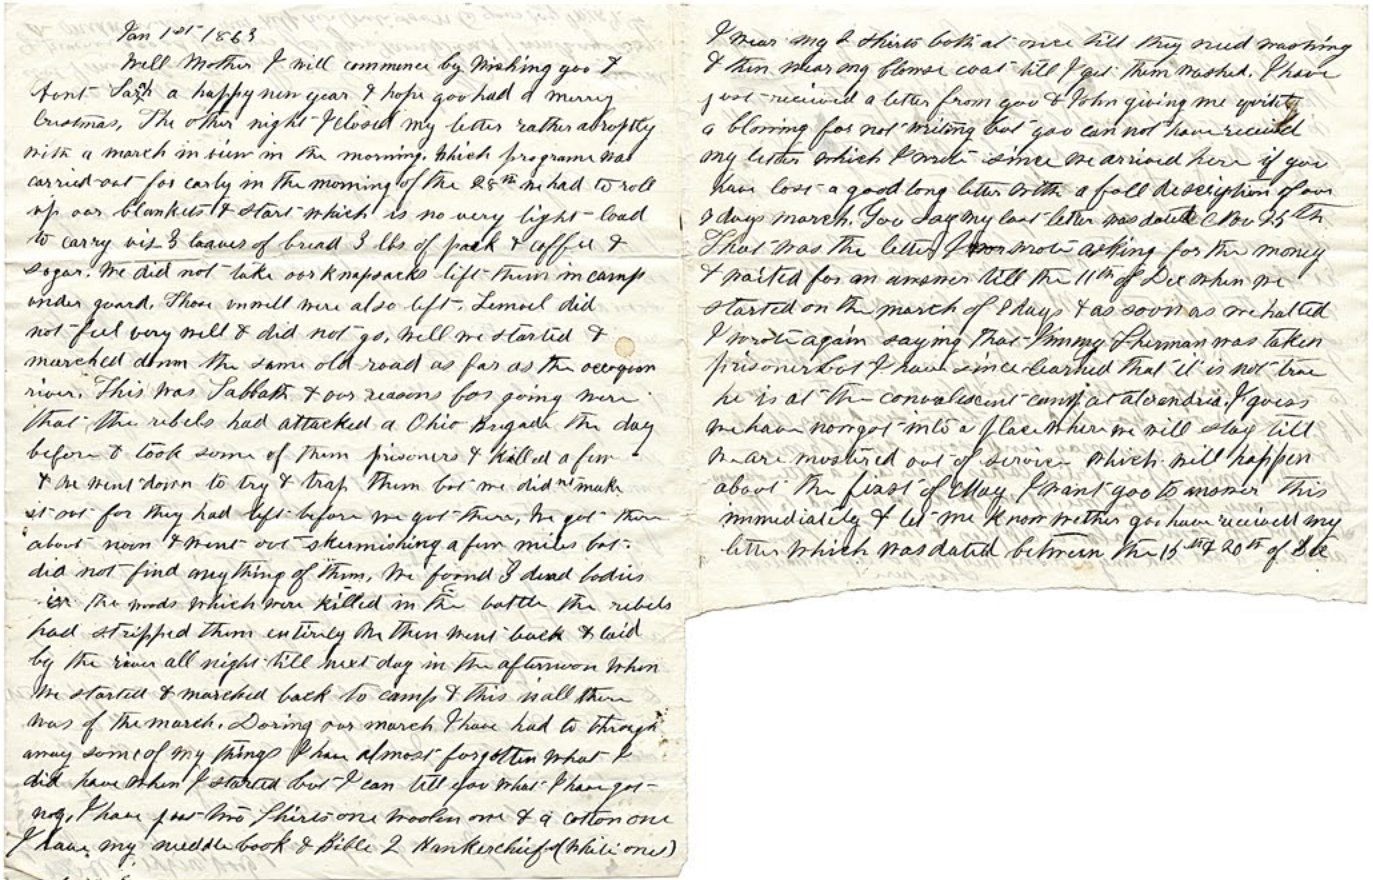 Jan 1st 1863
Well Mother I will commence by Wishing you &
Aont Sarh a happy new year & hope you had a merry
Cristmas, The other night I closed my letter rather abroptly
with a march in view in the morning. Which programe was
carried out for early in the morning of the 28th we had to roll
up our blankets & start which is no very light load
to carry viz 3 loaves of bread 3 lbs of pork & coffee &
sogar. We did not take our knapsacks left them in camp
onder guard. Those unwell were also left. Lemoel did
not feel very well & did not go, Well we started &
marched down the same old road as far as the occoquon
river. This was Sabbath & our reasons for going were
that the rebels had attacked a Ohio Brigade the day
before & took some of them prisoners & killed a few
& we went down to try & trap them but we did not make
it out for they had left before we got there, We got there
about noon & went out skermishing a few miles but
did not find anything of them, We found 3 dead bodies
in the woods which were killed in the battle the rebels
had stripped them entirely We then went back & laid
by the river all night till next day in the afternoon when
we started & marched back to camp & this is all there
was of the march. Doring our march I have had to through
away some of my things I have almost forgotten what I
did have when I started but I can tell you what I have got
now, I have just two Shirts one woolen one & a cotton one
I have my needle book & Bible 2 Hankerchief (White ones)
I wear my 2 shirts both at once till they need washing
& then wear my blouse coat till I get them washed. I have
just received a letter from you & John giving me quite
a blowing for not writing but you can not have received
my letter which I wrote since we arrived here if you
have lost a good long letter with a full desciption of our
8 days march. You say my last letter was dated Nov 25th
That was the letter I wrote asking for the money
& waited for an answer till the 11th of Dec when we
started on the march of 8 days & as soon as we halted
I wrote again saying that Jimmy Sherman was taken
prisoner but I have since learned that it is not true
he is at the convalescent camp at alexandria. I guess
we have now got into a place where we will stay till
we are mostered out of service which will happen
about the first of May I want you to answer this
immediately & let me know wether you have received my
letter which was dated between the 15th & 20th of Dec